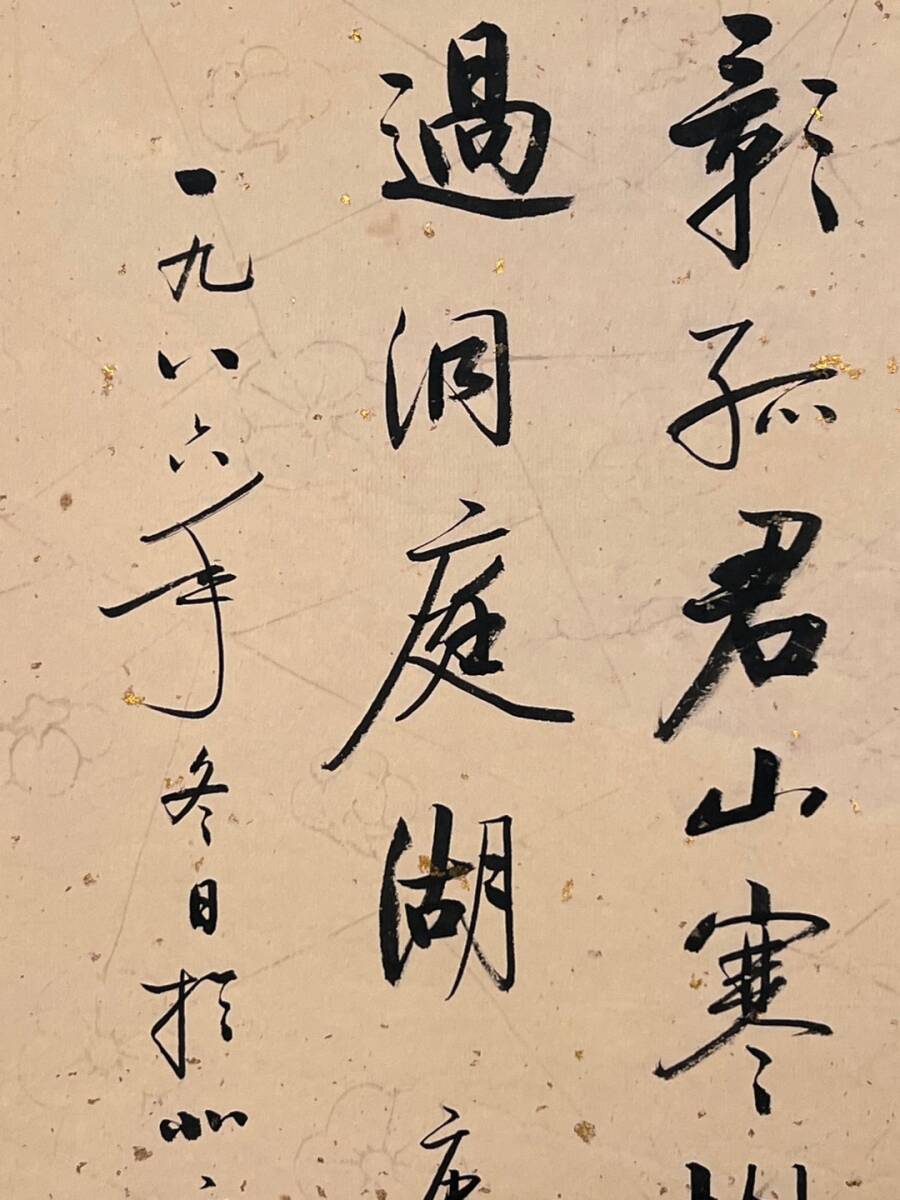 影孤君山寒
過洞庭湖
一九八六年冬日於北